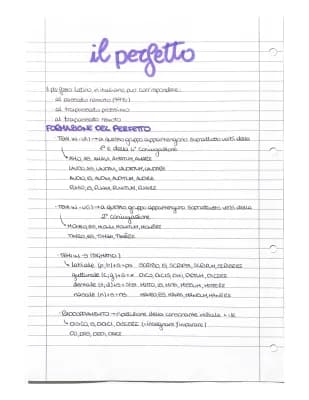 il perfetto
Il perfetto latino in italiano può corrispondere:
al passato remoto
al trapassato prossimo
al trapassato remoto
FORMAZIONE DEL PERFETTO
- TEMI IN -V(I) → a questo gruppo appartengono soprattutto verbi della
1ª e della 4ª coniugazione
AMO, AS, AMAVI, AMATUM, AMARE
LAUDO, AS, LAUDAVI, LAUDATUM, LAUDARE
AUDIO, IS, AUDIVI, AUDITUM, AUDIRE
- TEMI IN -U(I) → a questo gruppo appartengono soprattutto verbi della
2ª coniugazione
MONEO, ES, MONUI, MONITUM, MONERE
TIMEO, ES, TIMUI, TIMERE
- TEMI IN -S (SIGMATICI)
labiale (p, b) + s = ps SCRIBO, IS, SCRIPSI, SCRIPTUM, SCRIBERE
gutturale (c, g) + s = x DICO, DICIS, DIXI, DICTUM, DICERE
dentale (t, d) + s = s/ss MITTO, IS, MISI, MISSUM, MITTERE
nasale (n) + s = ns MANEO, ES, MANSI, MANSUM, MANERE
- RADDOPPIAMENTO → ripetizione della consonante iniziale
DISCO, IS, DIDICI, DISCERE (= insegnare / imparare)
DO, DAS, DEDI, DARE